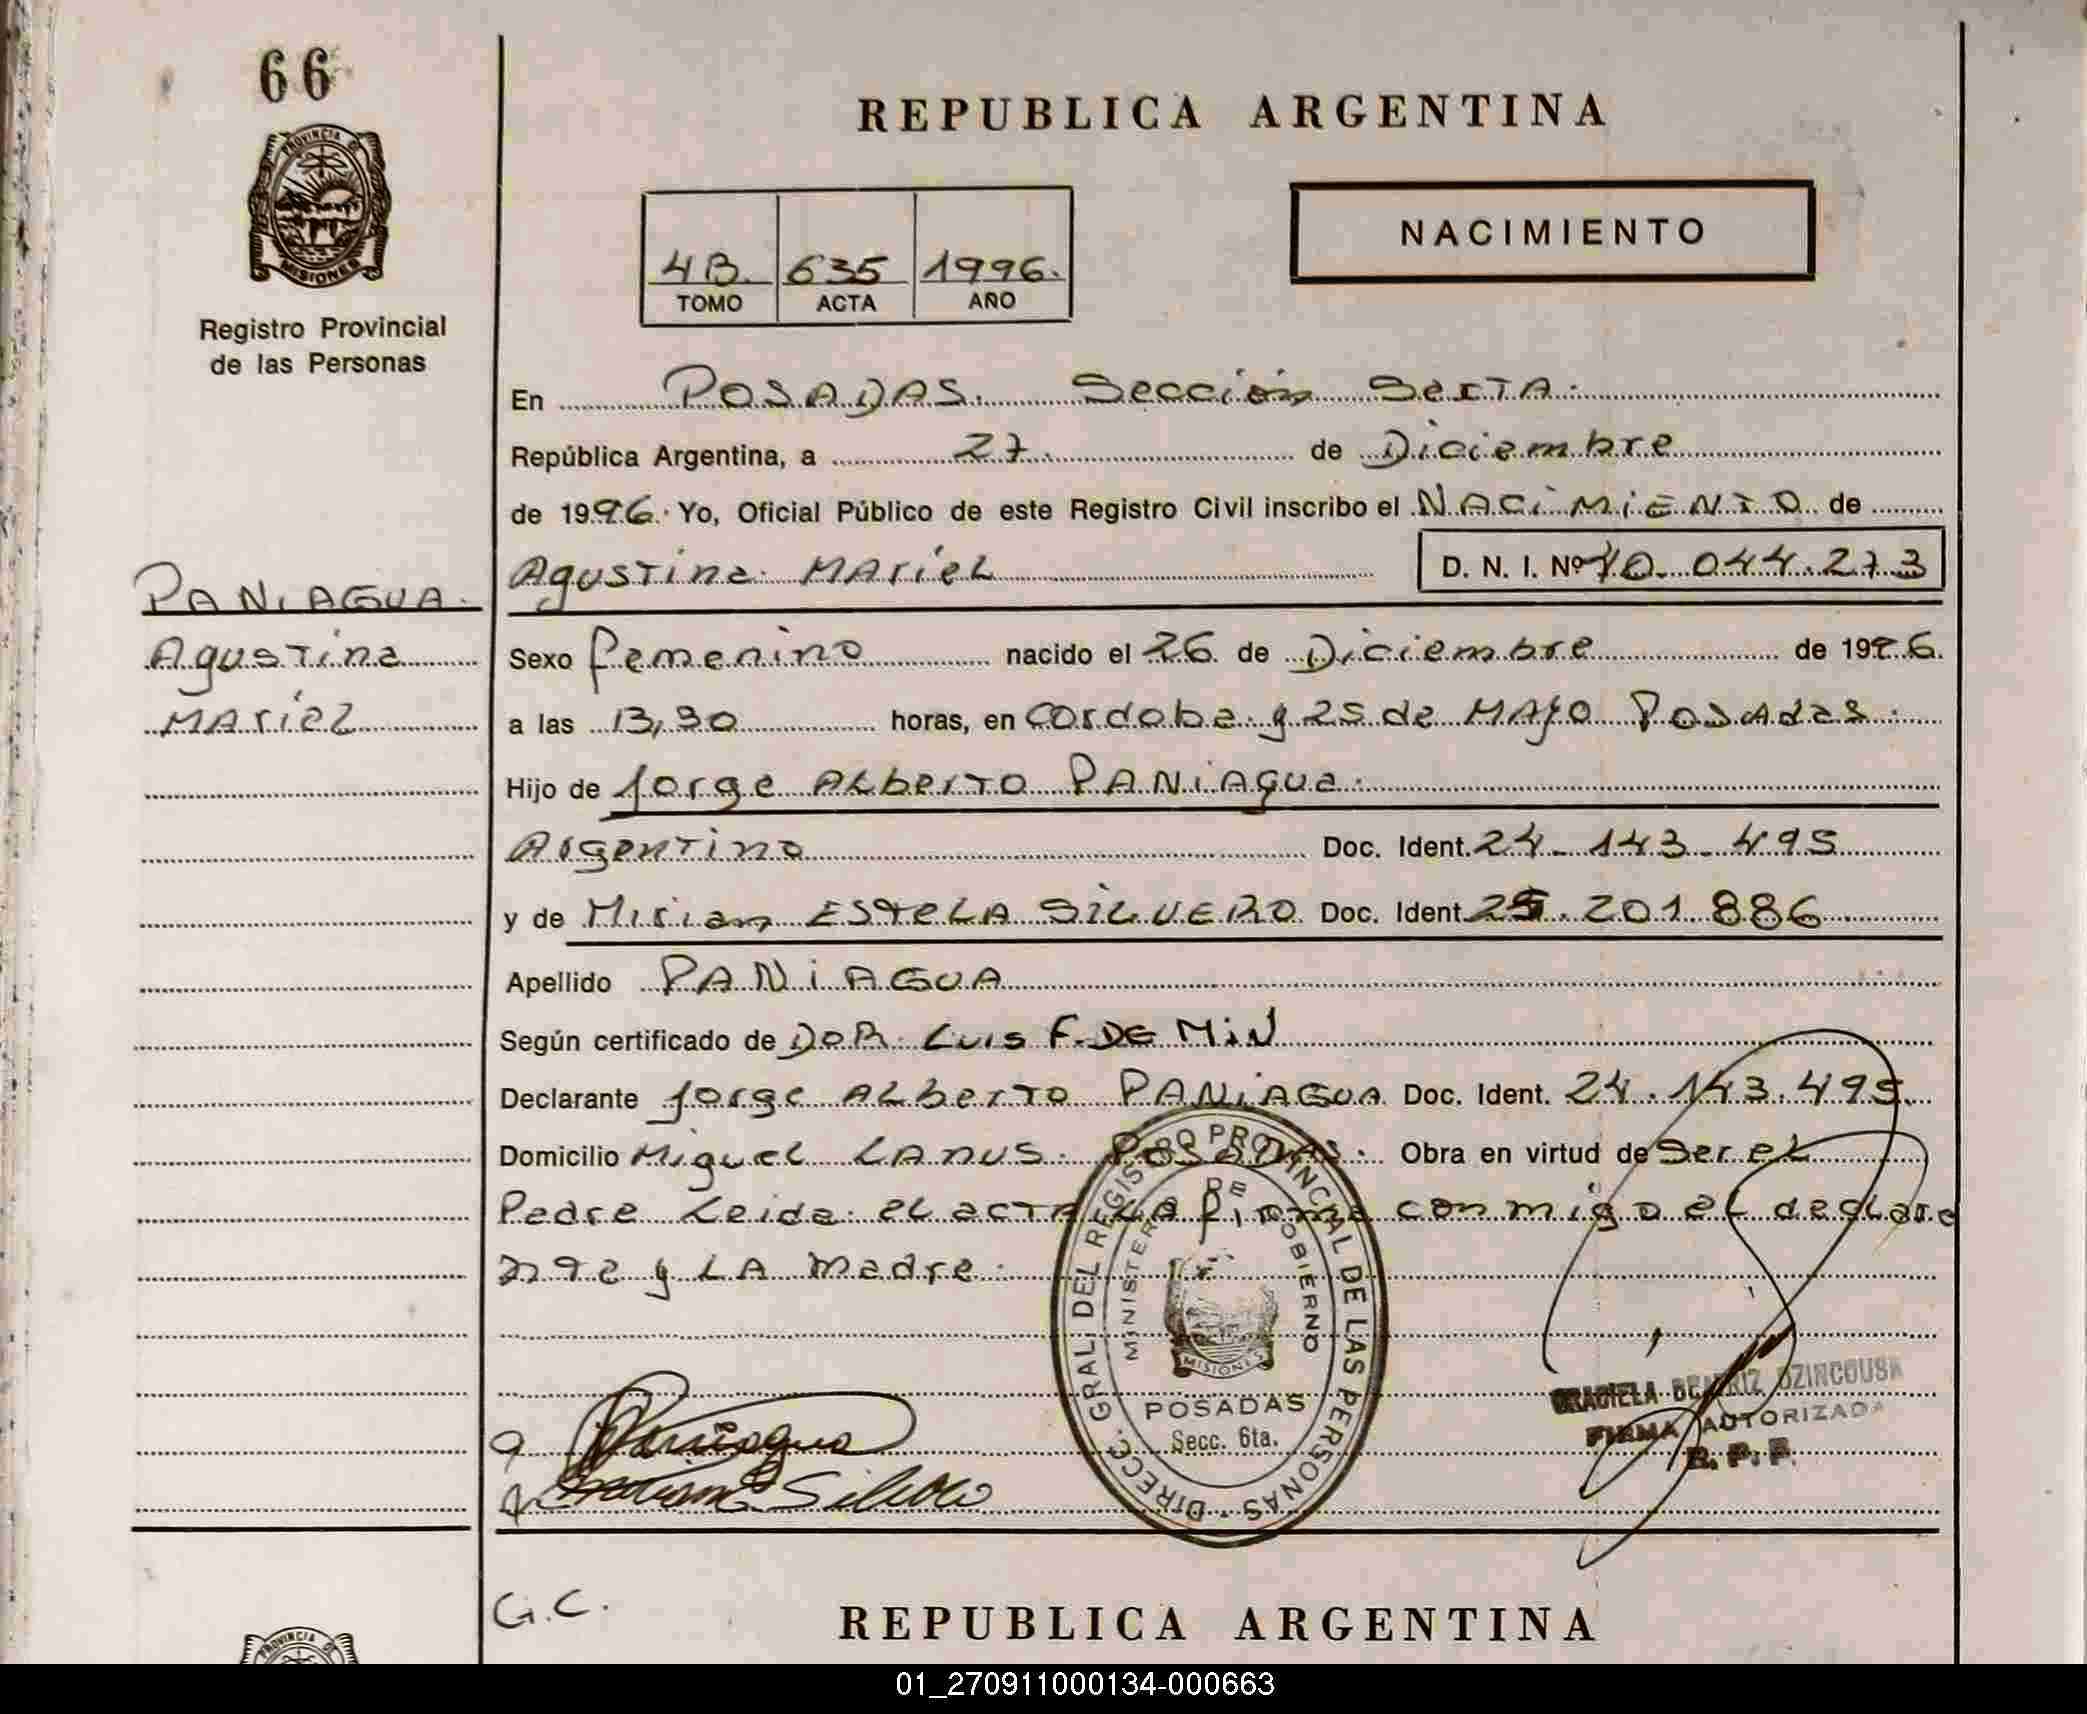 66
PROVINCIA DE
MISIONES
Registro Provincial
de las Personas
REPUBLICA ARGENTINA
NACIMIENTO
4B. 635 1996.
TOMO ACTA AÑO
En POSADAS. Sección SexTA.
República Argentina, a 27. de Diciembre
de 1996. Yo, Oficial Público de este Registro Civil inscribo el NACiMiENTO de
Agustina MARieL D. N. I. Nº 40.044.273
PANiAGUA.
Agustina
MArieL
Sexo femenino nacido el 26 de Diciembre de 1996.
a las 13,30 horas, en Cordoba y 25 de MAyo Posadas.
Hijo de Jorge ALberTo PANiAgua.
Argentino Doc. Ident. 24.143.495
y de Miriam ESTeLA SiLVERO Doc. Ident 25.201.886
Apellido PANiAGUA
Según certificado de DOR. Luis F. DE MiN
Declarante Jorge ALberTo PANiAGUA Doc. Ident. 24.143.495.
Domicilio Miguel LAnus. POSADAS. Obra en virtud de Ser eL
Padre Leida eL acta LA firma conmigo eL declara
nte y LA madre.
DIRECC. GRAL. DEL REGISTRO PROVINCIAL DE LAS PERSONAS
MINISTERIO DE GOBIERNO
MISIONES
POSADAS
Secc. 6ta.
GRACIELA BEATRIZ DZINCOUSK
FIRMA AUTORIZADA
R. P. P.
Paniagua
Miriam Silvero
G.C.
REPUBLICA ARGENTINA
PROVINCIA DE
01_270911000134-000663